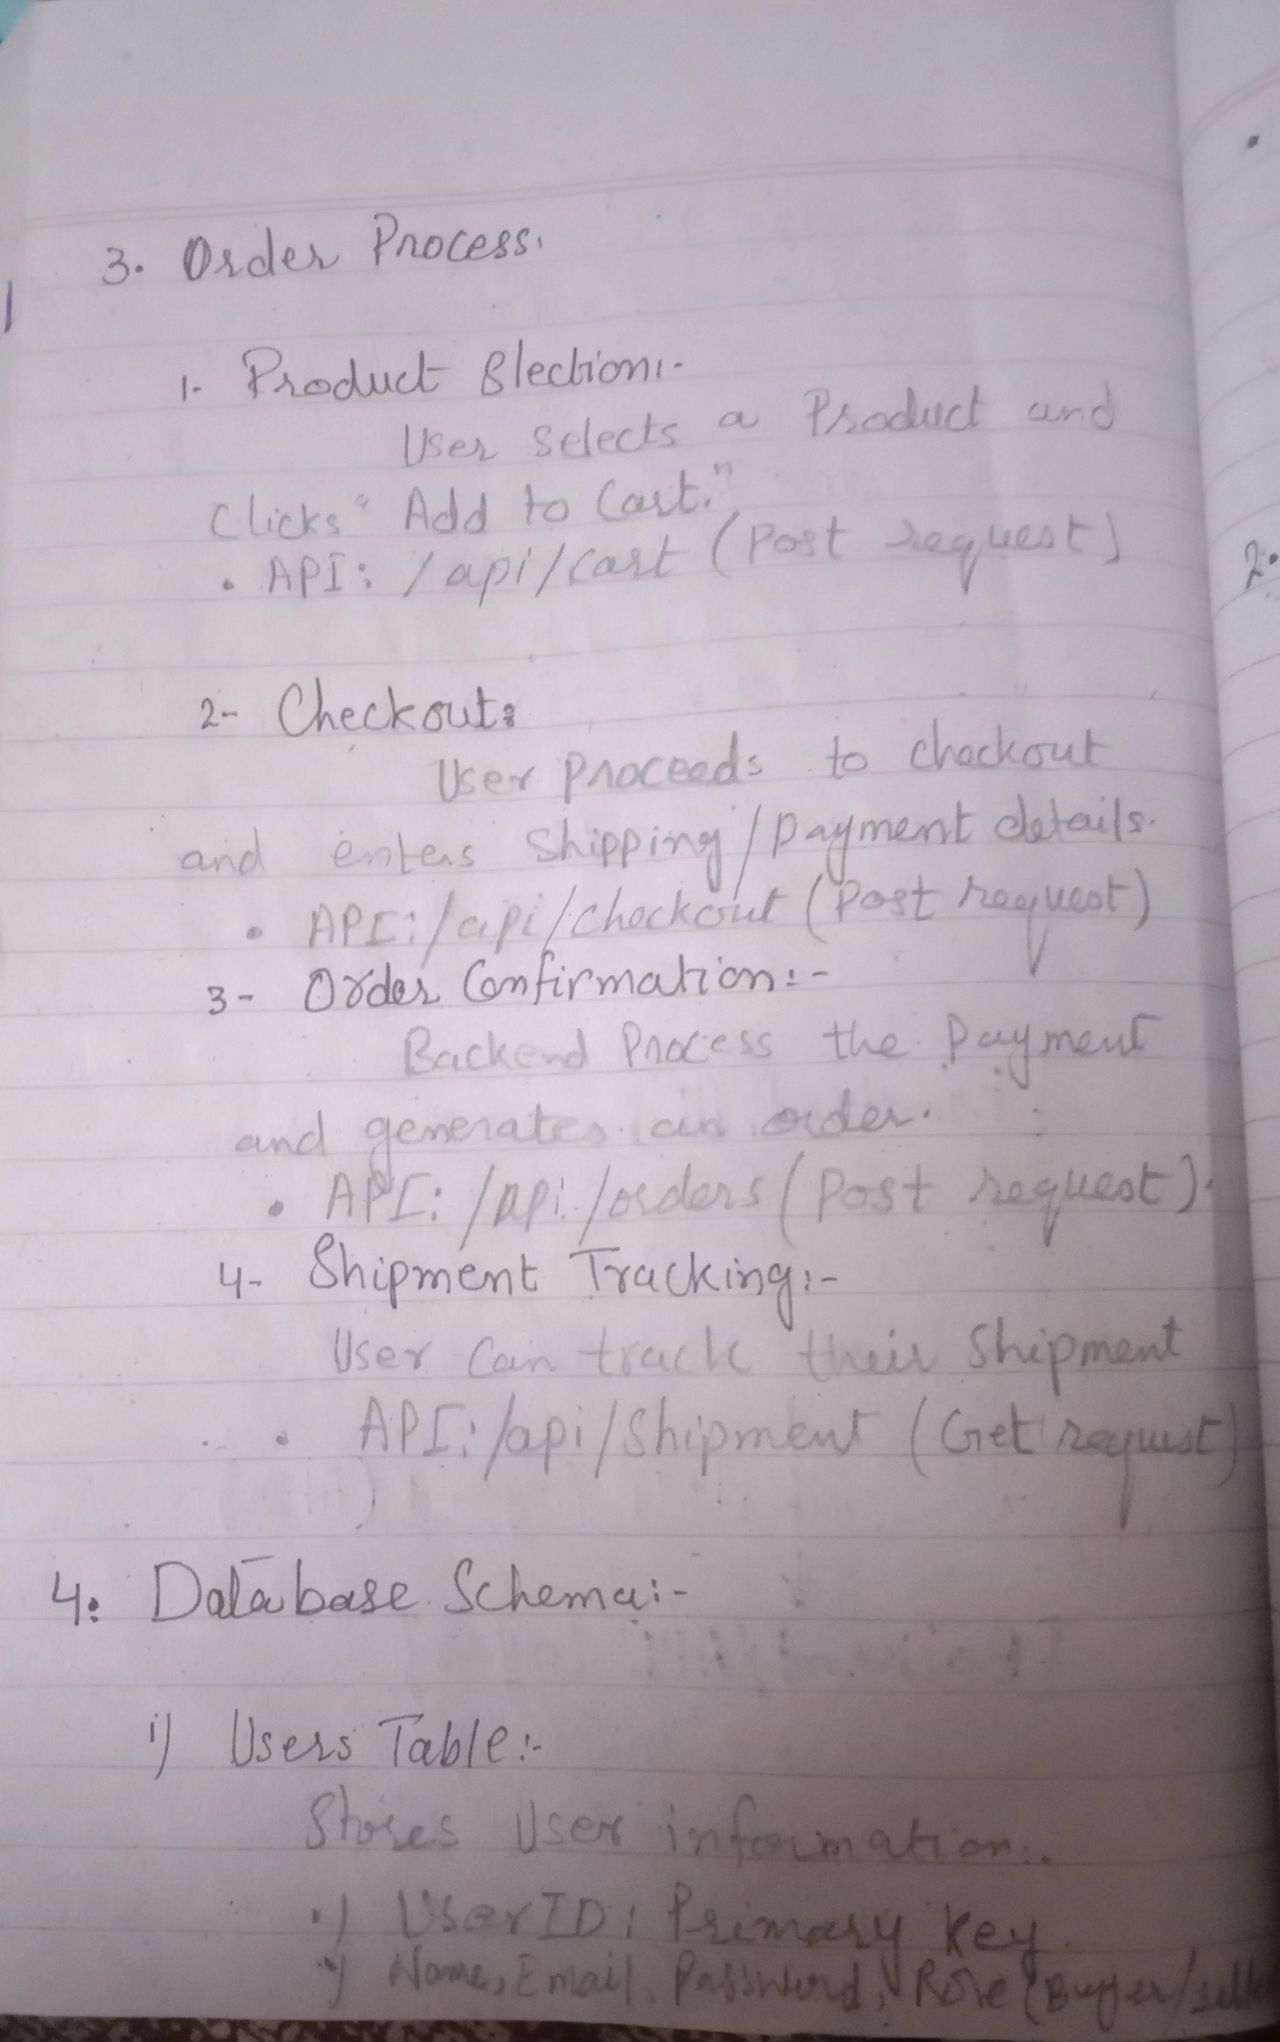 3. Order Process.
1- Product Slection:-
User Selects a Product and
Clicks "Add to Cart."
• API: /api/cart (Post request)
2- Checkout:
User proceeds to checkout
and enters Shipping/payment details.
• API: /api/checkout (Post request)
3- Order Confirmation:-
Backend Process the Payment
and generates an order.
• API: /api/orders (Post request).
4- Shipment Tracking:-
User Can track their Shipment
• API: /api/Shipment (Get request)
4: Database Schema:-
i) Users Table:-
Stores User information..
•) User ID: Primary Key.
•) Name, Email, Password, Role (Buyer/
2.